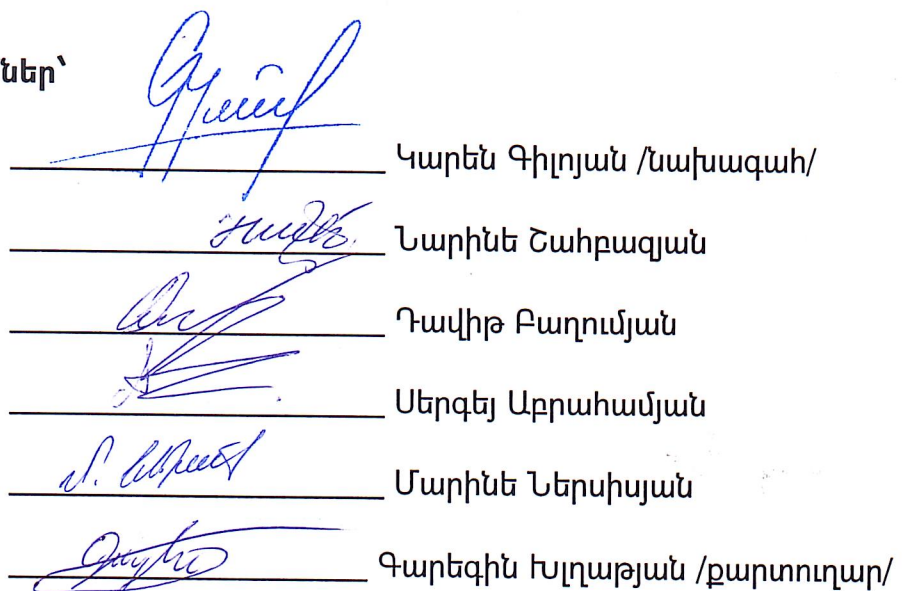 ներ՝
Կարեն Գիլոյան /նախագահ/
Նարինե Շահբազյան
Դավիթ Բաղումյան
Սերգեյ Աբրահամյան
Մարինե Ներսիսյան
Գարեգին Խլղաթյան /քարտուղար/